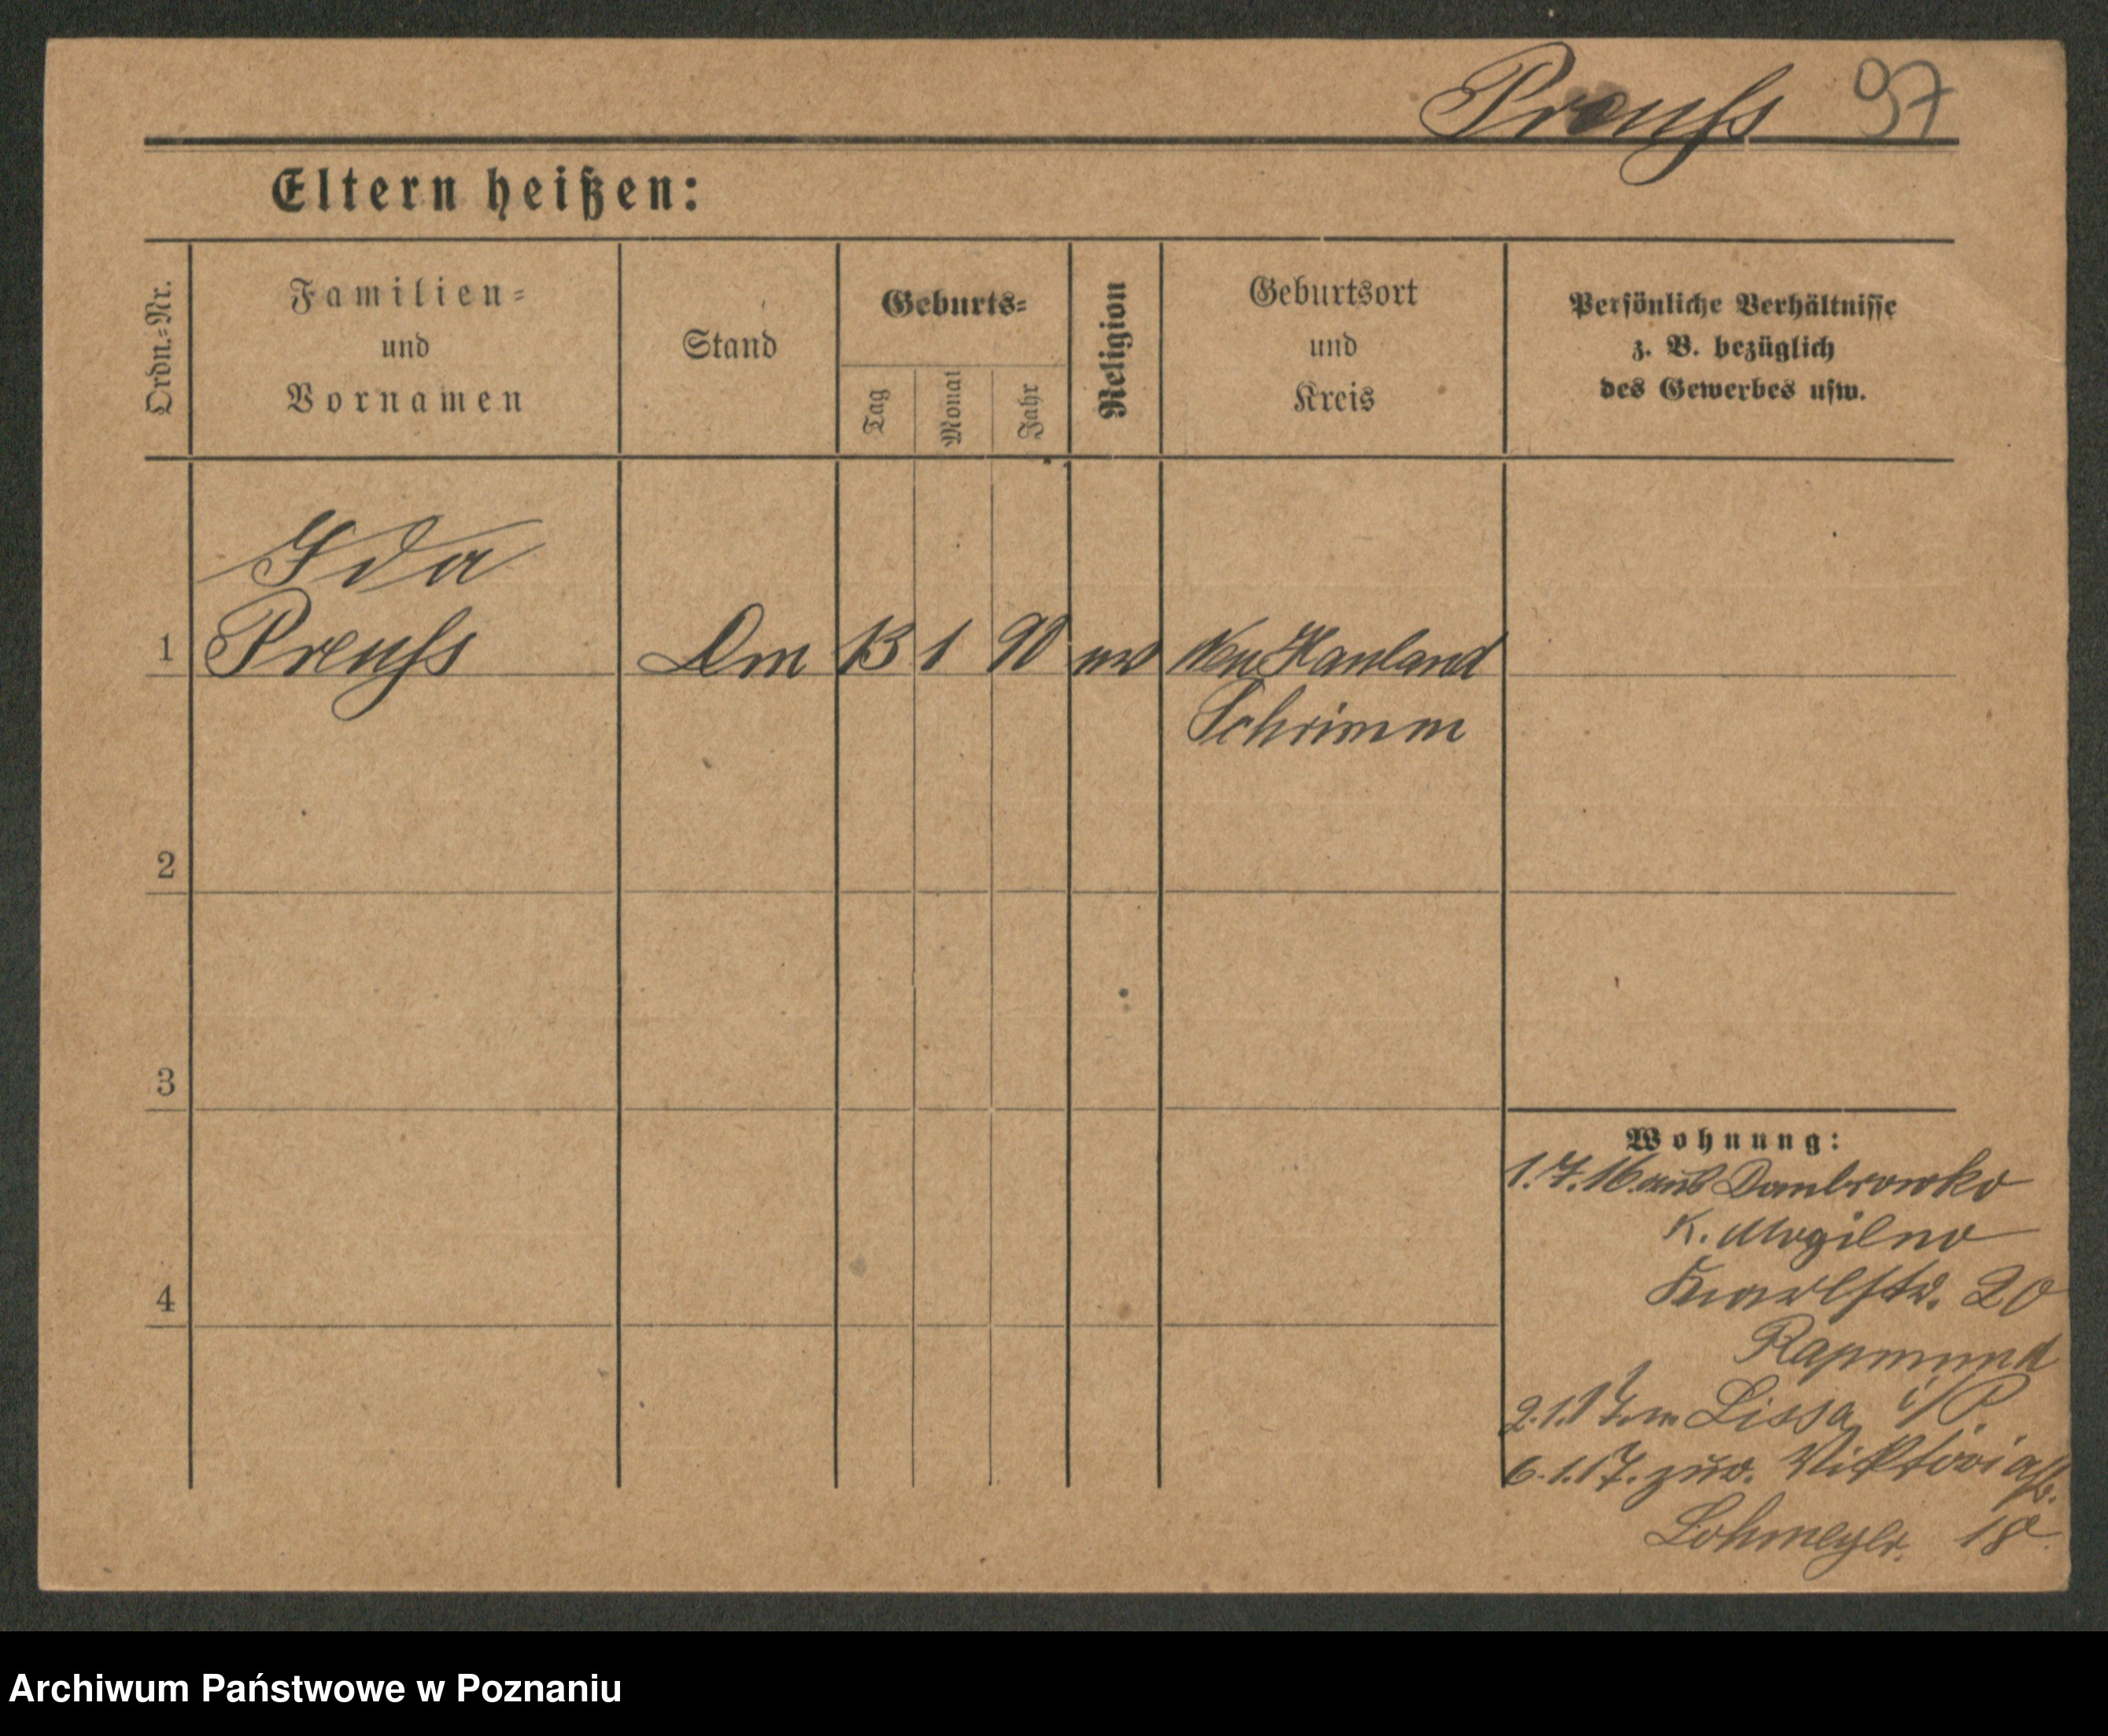 Preuß 97
Eltern heißen:
Ordn.=Nr.
Familien=
und
Vornamen
Stand
Geburts=
Tag
Monat
Jahr
Religion
Geburtsort
und
Kreis
Persönliche Verhältnisse
z. B. bezüglich
des Gewerbes usw.
Ida
1 Preuß 13 1 90 Neu Hauland
Schrimm
2
3
4
Wohnung:
1.7.16 aus Dambrowko
K. Mogilno
20
Rapmund
2.1.17 Lissa i/P.
6.1.17. zur. Viktoriastr.
Lohmeyer. 18
Archiwum Państwowe w Poznaniu